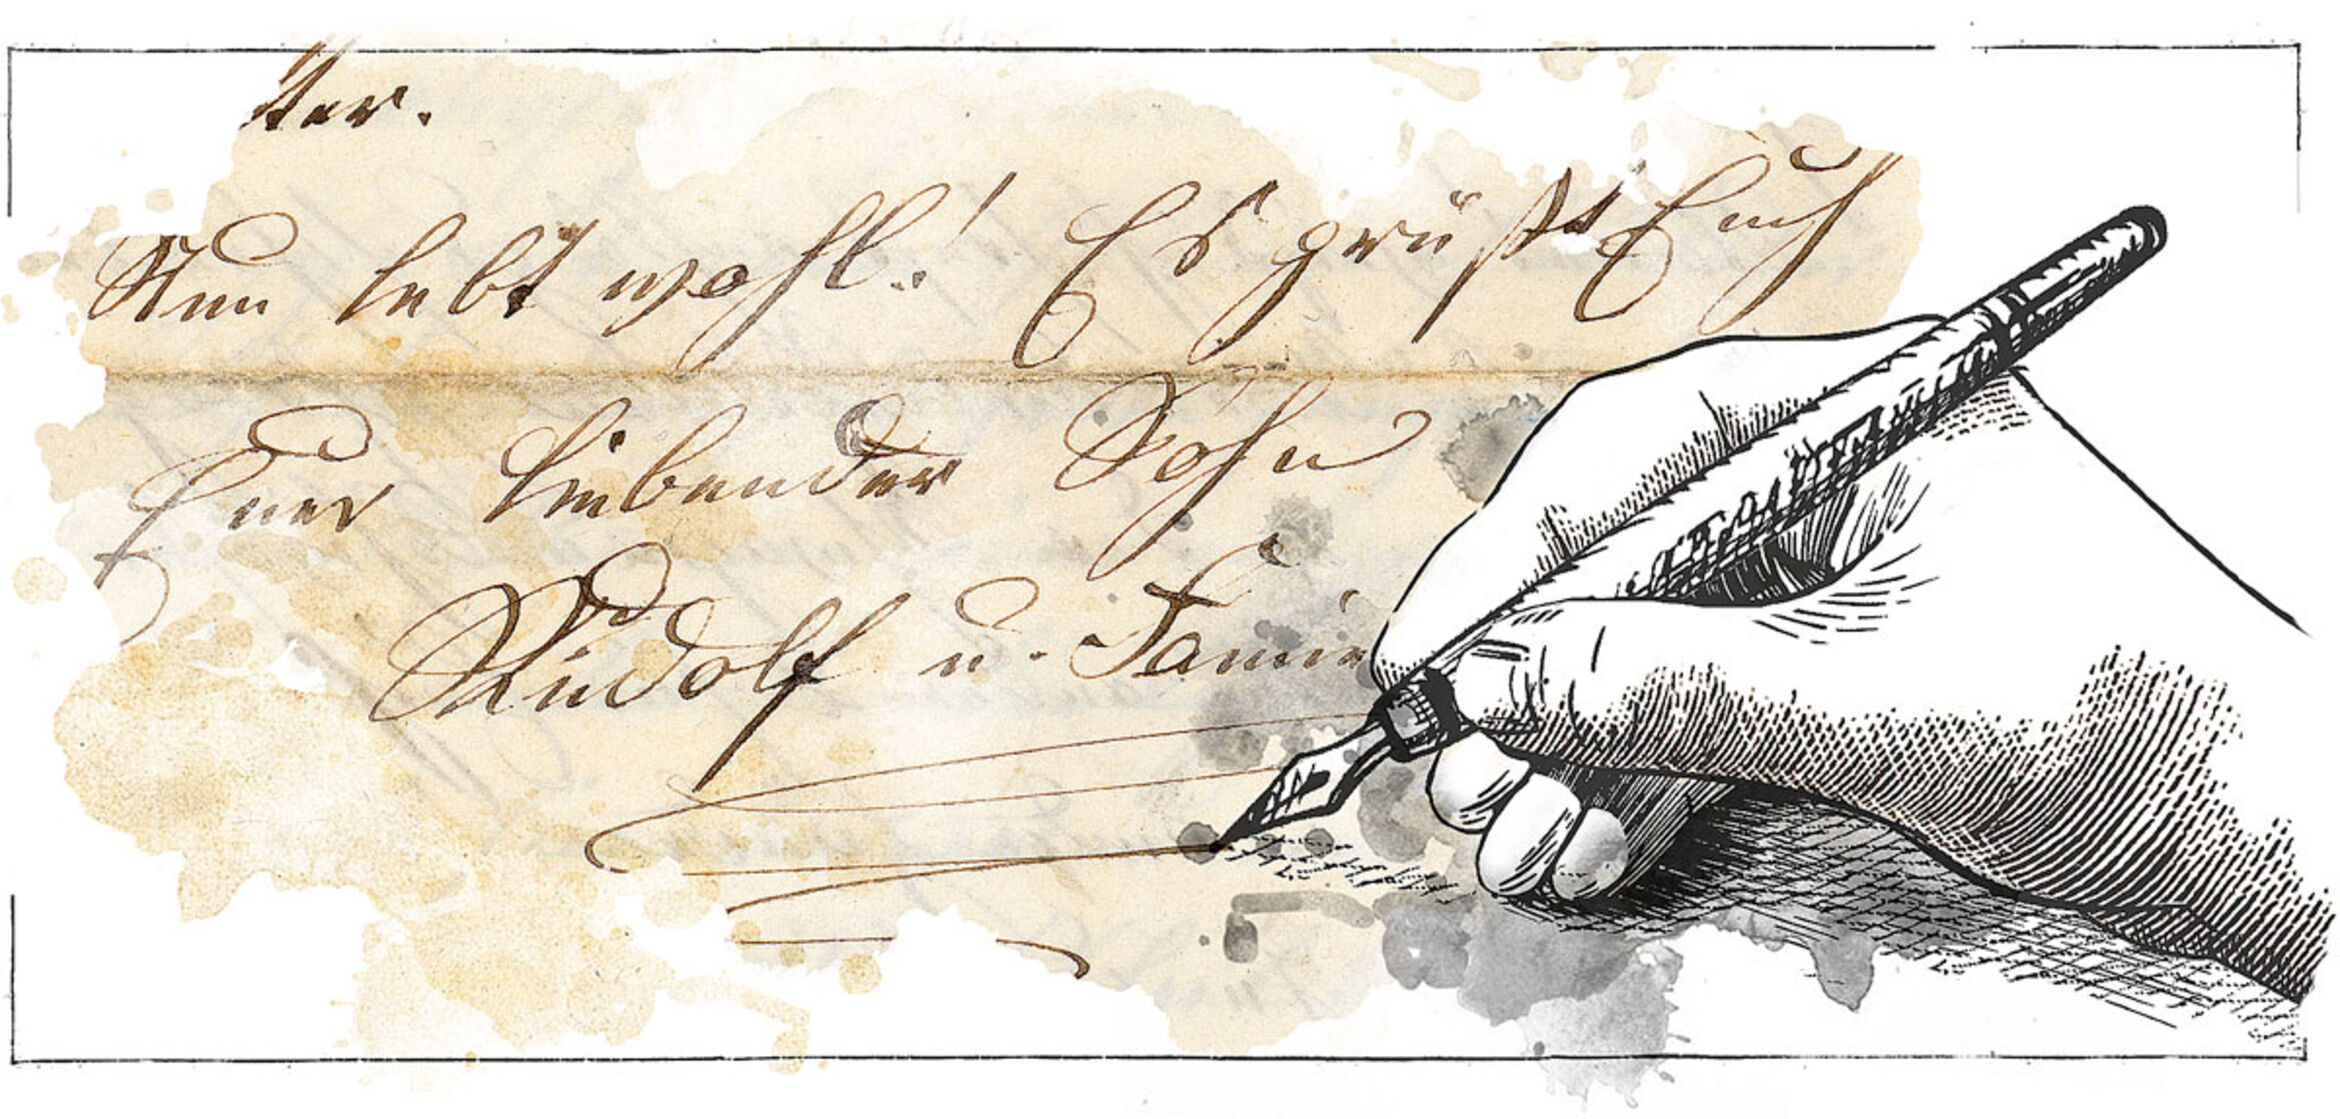 ter.
Nun lebt wohl! Es grüßt Euch
Euer liebender Sohn
Rudolf u.